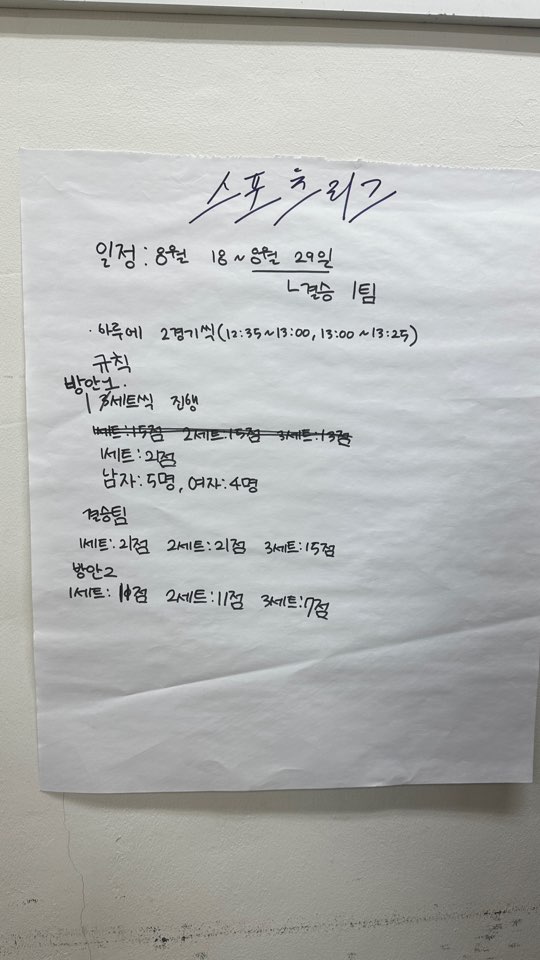 스포츠리그
일정: 8월 18 ~ 8월 29일
ㄴ결승 1팀
· 하루에 2경기씩(12:35~13:00, 13:00~13:25)
규칙
방안1.
1세트씩 진행
1세트:15점 2세트:15점 3세트:13점
1세트:21점
남자:5명, 여자:4명
결승팀
1세트:21점 2세트:21점 3세트:15점
방안2
1세트: 11점 2세트:11점 3세트:7점